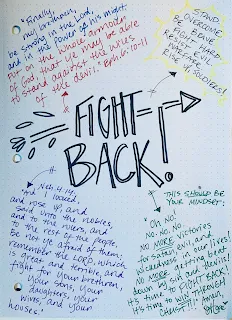 "Finally,
my brethren,
be strong in the Lord,
and in the power of his might.
Put on the whole armour
of God, that ye may be able
to stand against the wiles
of the devil." Eph. 6:10-11
STAND.
OVERCOME.
BE BRAVE.
FIGHT HARD.
RESIST EVIL.
RISE UP, SOLDIERS!
FIGHT
BACK!
Neh. 4:14
"And I looked,
and rose up, and
said unto the nobles,
and to the rulers, and
to the rest of the people,
Be not ye afraid of them:
remember the LORD, which
is great and terrible, and
fight for your brethren,
your sons, your
daughters, your
wives, and your
houses."
THIS SHOULD BE
YOUR MINDSET:
"NO, NO!
NO, NO, NO!
NO MORE victories
for satan, evil, and
wickedness in our lives!
NO MORE getting beat
down by sin and devils!
It's time to FIGHT BACK!
It's time to WIN THROUGH
CHRIST!!!"